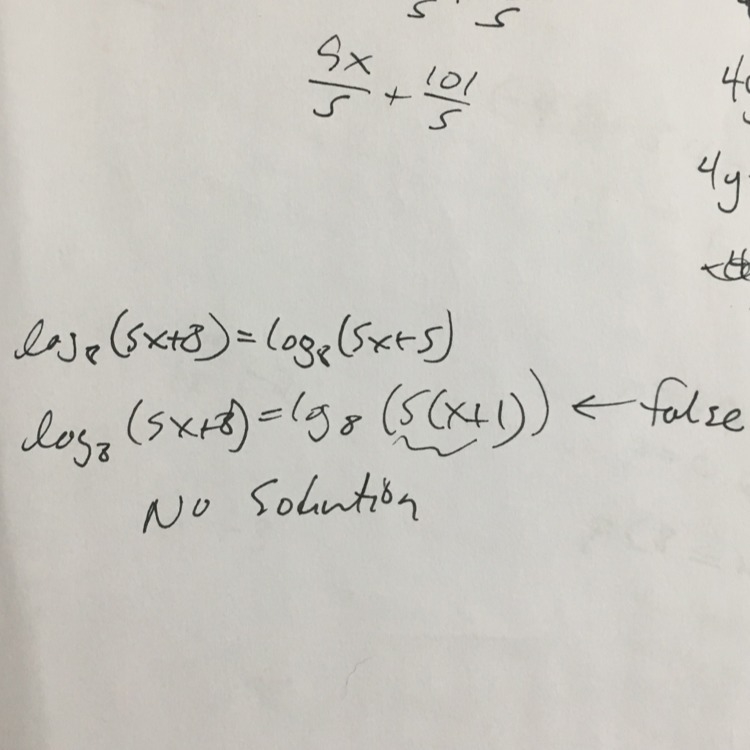 5 5
5x/5 + 101/5
4
4y
log₈(5x+8)=log₈(5x+5)
log₈(5x+8)=lg₈(5(x+1)) ← false
No Solution